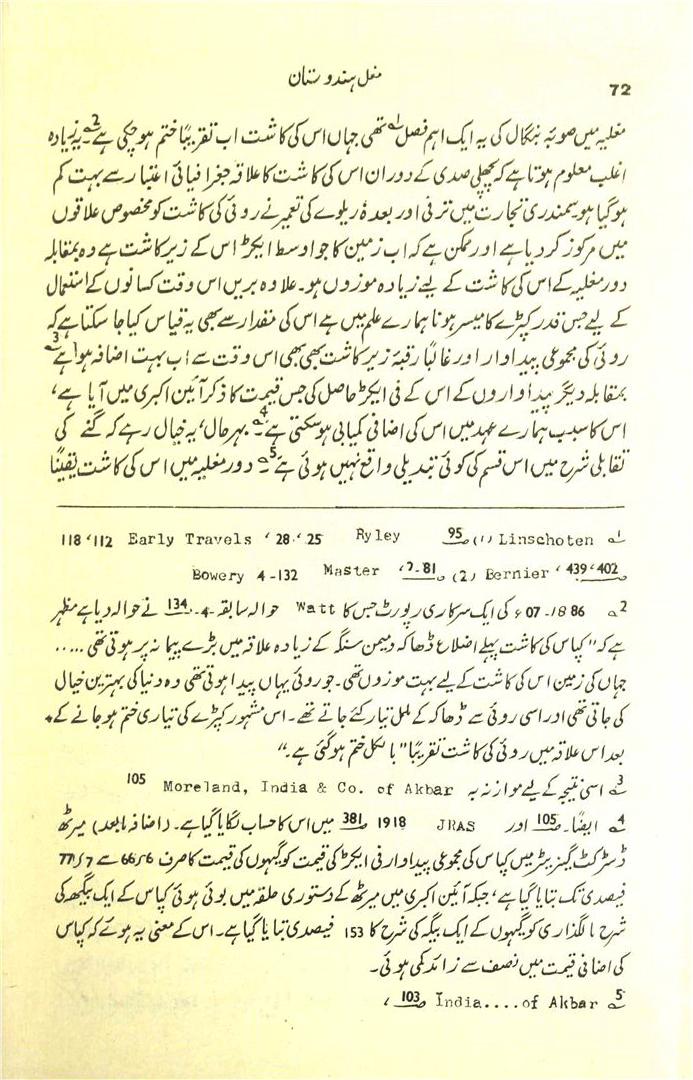 مغل ہندوستان
72
مغلیہ میں صوبۂ بنگال کی یہ ایک اہم فصل1؎ تھی جہاں اس کی کاشت اب تقریباً ختم ہو چکی ہے2؎۔ یہ زیادہ
اغلب معلوم ہوتا ہے کہ پچھلی صدی کے دوران اس کی کاشت کا علاقہ جغرافیائی اعتبار سے بہت کم
ہو گیا ہو۔ سمندری تجارت میں ترقی اور بعدہٗ ریلوے کی تعمیر نے روئی کی کاشت کو مخصوص علاقوں
میں مرکوز کر دیا ہے اور ممکن ہے کہ اب زمین کا جو اوسط ایکڑ اس کے زیر کاشت ہے وہ بمقابلہ
دور مغلیہ کے اس کی کاشت کے لیے زیادہ موزوں ہو۔ علاوہ بریں اس وقت کسانوں کے استعمال
کے لیے جس قدر کپڑے کا میسر ہونا ہمارے علم میں ہے اس کی مقدار سے بھی یہ قیاس کیا جا سکتا ہے کہ
روئی کی مجموعی پیداوار اور غالباً رقبۂ زیر کاشت بھی بھی اس وقت سے اب بہت اضافہ ہوا ہے3؎
بمقابلہ دیگر پیداواروں کے اس کے فی ایکڑ حاصل کی جس قیمت کا ذکر آئین اکبری میں آیا ہے،
اس کا سبب ہمارے عہد میں اس کی اضافی کمیابی ہو سکتی ہے4؎۔ بہر حال، یہ خیال رہے کہ گنے کی
تقابلی شرح میں اس قسم کی کوئی تبدیلی واقع نہیں ہوئی ہے5؎۔ دور مغلیہ میں اس کی کاشت یقیناً
1؎ Linschoten (1) ص95 Ryley 25، 28، Early Travels 112، 118
ص402، 439، Bernier (2) ص81-2، Master Bowery 4-132
2؎ 1886-07ء کی ایک سرکاری رپورٹ جس کا Watt حوالہ سابقہ -4- ص134 نے حوالہ دیا ہے مظہر
ہے کہ "کپاس کی کاشت پہلے اضلاع ڈھاکہ و میمن سنگہ کے زیادہ علاقہ میں بڑے پیمانہ پر ہوتی تھی .....
جہاں کی زمین اس کی کاشت کے لیے بہت موزوں تھی۔ جو روئی یہاں پیدا ہوتی تھی وہ دنیا کی بہترین خیال
کی جاتی تھی اور اسی روئی سے ڈھاکہ کے ململ تیار کئے جاتے تھے۔ اس مشہور کپڑے کی تیاری ختم ہو جانے کے
بعد اس علاقہ میں روئی کی کاشت تقریباً "بالکل ختم ہو گئی ہے۔"
3؎ اسی نتیجہ کے لیے موازنہ بہ Moreland, India & Co. of Akbar 105
4؎ ایضاً۔ ص105 اور JRAS 1918 ص381 میں اس کا حساب لگایا گیا ہے۔ (اضافہ مابعد) میرٹھ
ڈسٹرکٹ گیزیٹر میں کپاس کی مجموعی پیداوار فی ایکڑ کی قیمت کو گیہوں کی قیمت کا صرف 66/6 سے 77/7
فیصدی تک بتایا گیا ہے، جبکہ آئین اکبری میں میرٹھ کے دستوری حلقہ میں بوئی ہوئی کپاس کے ایک بیگھہ کی
شرح مالگذاری کو گیہوں کے ایک بیگہ کی شرح کا 153 فیصدی بتایا گیا ہے۔ اس کے معنی یہ ہوئے کہ کپاس
کی اضافی قیمت میں نصف سے زائد کمی ہوئی۔
5؎ India....of Akbar ص103،